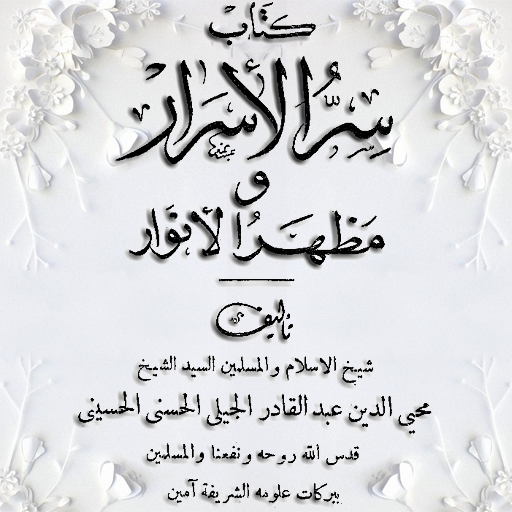 كتاب
سِرُّ الأسرار
و
مَظهَرُ الأنوَار
تأليف
شيخ الاسلام والمسلمين السيد الشيخ
محيي الدين عبد القادر الجيلي الحسنى الحسينى
قدس الله روحه ونفعنا والمسلمين
ببركات علومه الشريفة آمين